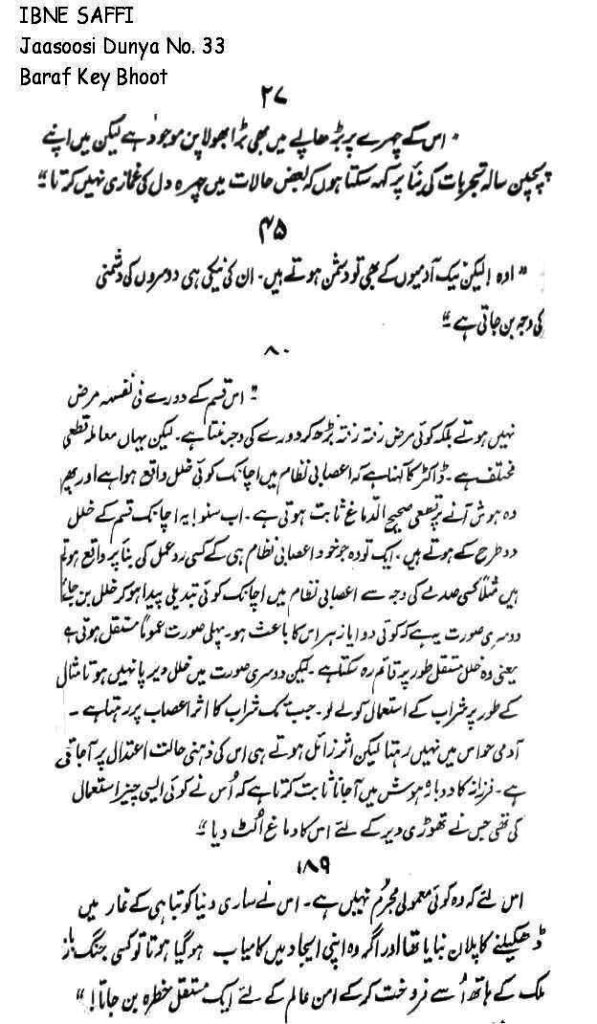 IBNE SAFFI
Jaasoosi Dunya No. 33
Baraf Key Bhoot
۲۷
" اس کے چہرے پر بڑھاپے میں بھی بڑا بھولا پن موجود ہے لیکن میں اپنے
پچپن سالہ تجربات کی بنا پر کہہ سکتا ہوں کہ بعض حالات میں چہرہ دل کی غمازی نہیں کرتا "
۴۵
" اوہ ! لیکن نیک آدمیوں کے بھی تو دشمن ہوتے ہیں۔ ان کی نیکی ہی دوسروں کی دشمنی
کی وجہ بن جاتی ہے "
۸۰
" اس قسم کے دورے فی نفسہہ مرض
نہیں ہوتے بلکہ کوئی مرض رفتہ رفتہ بڑھ کر دورے کی وجہ بنتا ہے۔ لیکن یہاں معاملہ قطعی
مختلف ہے ۔ ڈاکٹر کا کہنا ہے کہ اعصابی نظام میں اچانک کوئی خلل واقع ہوا ہے اور پھر
وہ ہوش آنے پر قطعی صحیح الدماغ ثابت ہوتی ہے ۔ اب سنو ! یہ اچانک قسم کے خلل
دو طرح کے ہوتے ہیں ۔ ایک تو وہ جو خود اعصابی نظام ہی کے کسی ردعمل کی بنا پر واقع ہوتے
ہیں مثلاً کسی صدمے کی وجہ سے اعصابی نظام میں اچانک کوئی تبدیلی پیدا ہو کر خلل بن جائے
دوسری صورت یہ ہے کہ کوئی دوا یا زہر اس کا باعث ہو۔ پہلی صورت عموماً مستقل ہوتی ہے
یعنی وہ خلل مستقل طور پر قائم رہ سکتا ہے ۔ لیکن دوسری صورت میں خلل دیرپا نہیں ہوتا مثال
کے طور پر شراب کے استعمال کو لے لو۔ جب تک شراب کا اثر اعصاب پر رہتا ہے ۔
آدمی حواس میں نہیں رہتا لیکن اثر زائل ہوتے ہی اس کی ذہنی حالت اعتدال پر آجاتی
ہے ۔ فرزانہ کا دوبارہ ہوش میں آجانا ثابت کرتا ہے کہ اُس نے کوئی ایسی چیز استعمال
کی تھی جس نے تھوڑی دیر کے لئے اس کا دماغ اُلٹ دیا "
۱۸۹
اس لئے کہ وہ کوئی معمولی مجرم نہیں ہے۔ اس نے ساری دنیا کو تباہی کے غار میں
ڈھکیلنے کا پلان بنایا تھا اور اگر وہ اپنی ایجاد میں کامیاب ہو گیا ہوتا تو کسی جنگ باز
ملک کے ہاتھ اُسے فروخت کر کے امن عالم کے لئے ایک مستقل خطرہ بن جاتا ! "